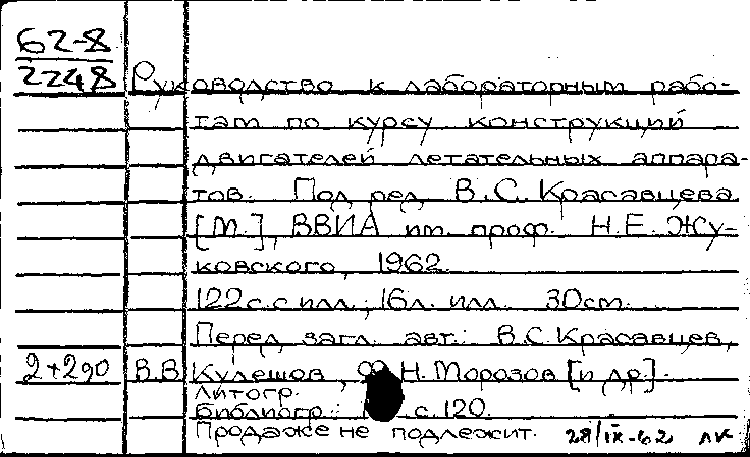 62-8
2248 Руководство к лабораторным рабо-
там по курсу конструкций
двигателей летательных аппара-
тов. Под ред. В.С. Красавцева
[М.], ВВИА им. проф. Н.Е. Жу-
ковского, 1962.
122 с. с илл.; 16 л. илл. 30 см.
Перед загл. авт.: В.С. Красавцев,
2+290 В.В. Кулешов, Н. Морозов [и др.].
Литогр.
Библиогр.: с. 120.
Продаже не подлежит. 28/IX-62 лк